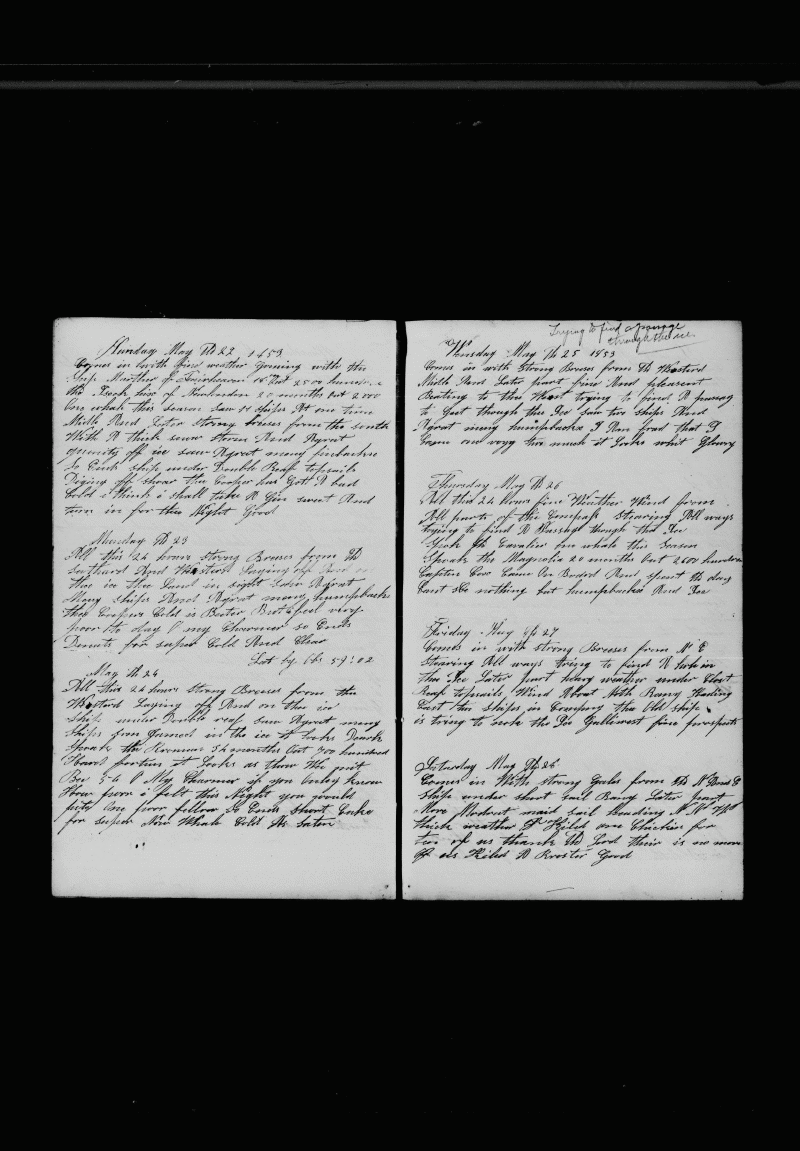 Sunday May th 22 1853
Comes in with fine weather Gaming with the
Ship Marther of Fairhaven 18 out 2500 hundred
the Isack of Nantucket 20 months out 2000
One whale this season Saw 11 ships At one time
Midle And Later strong breses from the south
With A thick snow storm And Agrat
quantity off ice saw Agrat many finbacks
So Ends ship under Double Reaf topsails
the Cooper has Gott A bad
Cold i think i shall take A Gin sweet And
turn in for the Night Good
Munday th 23
All this 24 hours strong Breses from th
Southard And Westard Laying off And on
the ice the Land in sight Saw Agrat
Many ships And Agrat many humpbacks
the Coopers Cold is Better But feel very
poor to day O my Charmer so Ends
Donuts for super Cold And Clear
Lat by Obs 59:02
May th 24
All this 24 hours strong Breses from the
Westard Laying off And on the ice
Ship under Double reaf saw Agrat many
Ships fin Jamed in the ice it Looks Dark
Spoak the Roman 34 months Out 700 hundred
Hard fortin it Looks as thou We
Bee 54 O My Charmer if you Onley know
How poor i felt this Night you would
pitty One poor fellow So Ends Short Cake
for super Nine Whale Cold
Trying to find a passage
through the ice
Wensday May th 25 1853
Comes in with Strong Breses from th Westerd
Midle And Later part fine And plesent
Beating to the West trying to find A passag
to Gett though the Ice saw two ships And
Agrat meny humpbacks I Am frad that I
Come on vogg two much it Looks Glomy
Thursday May th 26
All this 24 hours fine Weather Wind from
All parts of the Compass Stearing All ways
trying to find A Passage though the Ice
Spok th Cavalier one whale this Season
Spoak the Magnolia 20 months Out 2600 hundred
Captin Cox Came On Board And spent th day
Cant see nothing but humpbacks And Ice
Friday May th 27
Comes in with strong Breses from N E
Stearing All ways trying to find A hole in
the Ice Later part heavy weather under Close
Reaf topsails Wind About North Barny Heading
East the ships in Company the Old ship
is trying to work the Ice fine prospects
Saturday May th 28
Comes in With strong Gales from th N And E
Ship under short sail Barny Later part
More Moderat main sail heading N N W
thick weather Kiled one Chickin for
two of us thank th Lord their is no more
of us Kiled A Rooster Good